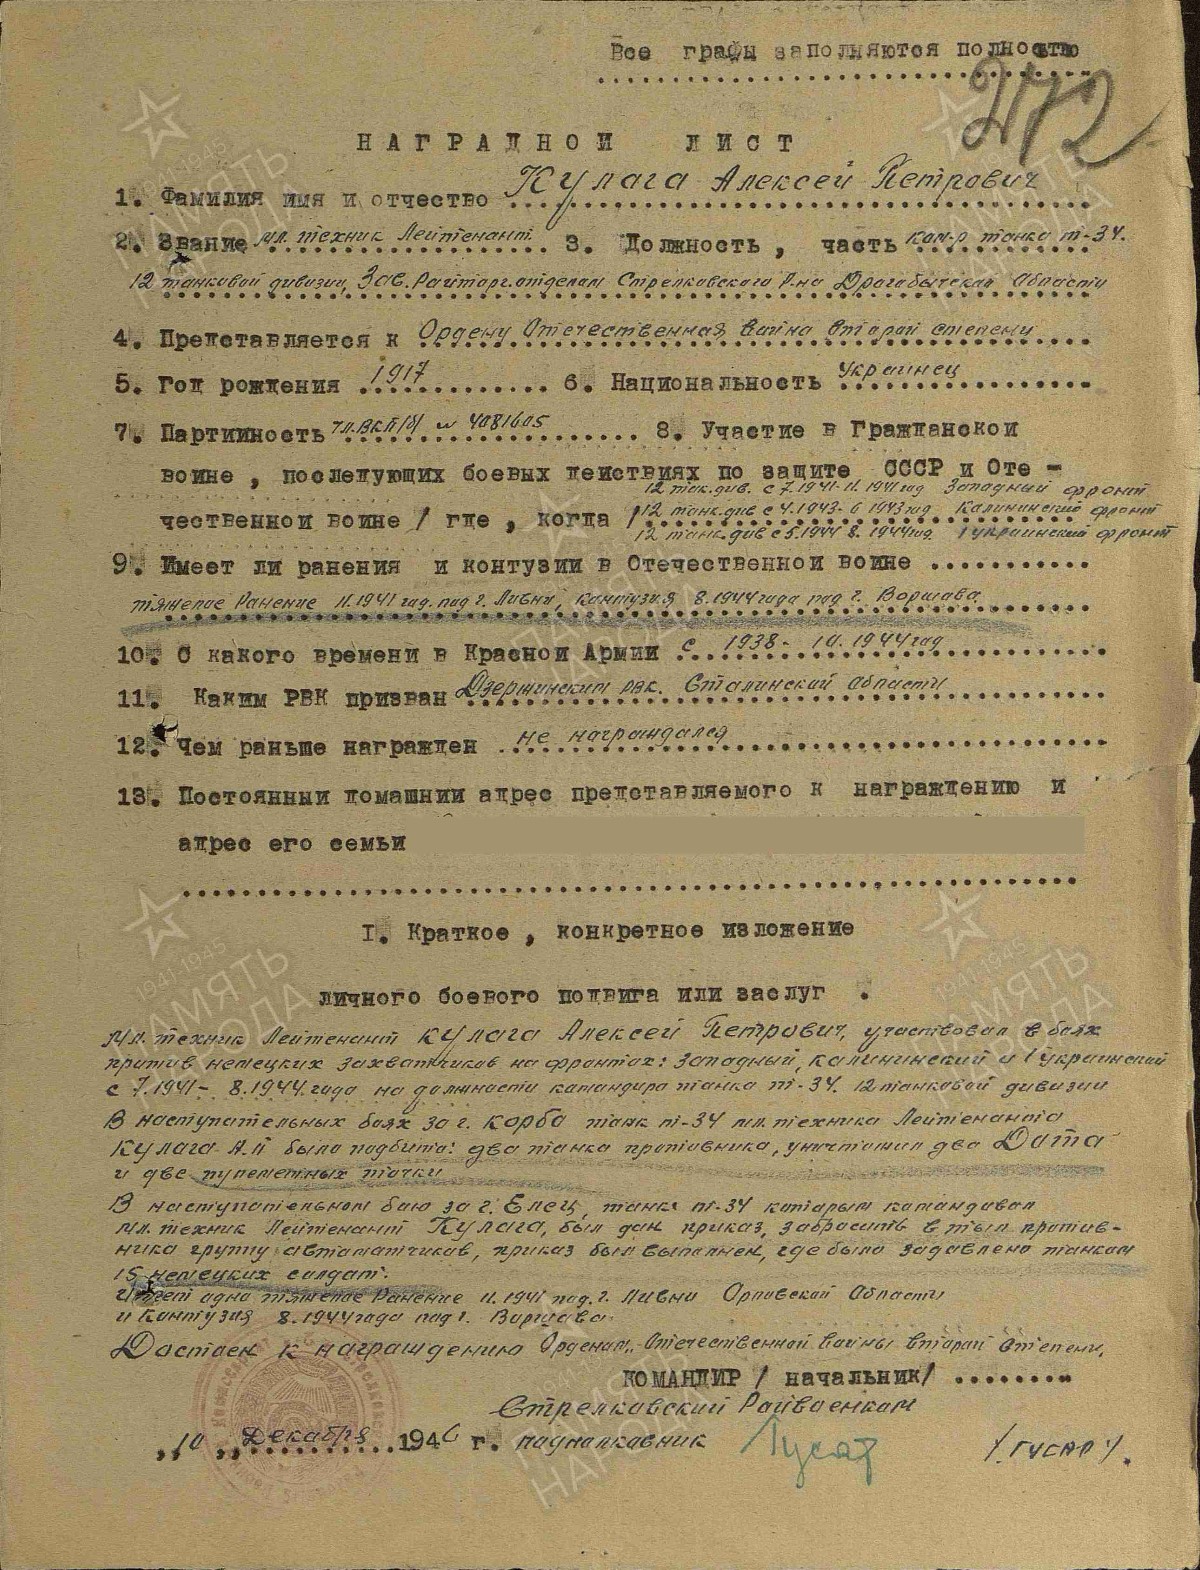 Все графы заполняются полностью
272
НАГРАДНОЙ ЛИСТ
1. Фамилия имя и отчество Кулага Алексей Петрович
2. Звание мл. техник Лейтенант. 3. Должность, часть ком-р танка т-34.
12 танковой дивизии, Зав. Райторг.отделом Стрелковского Р-на Драгобычской Области
4. Представляется к Ордену Отечественная Война Второй степени
5. Год рождения 1917 6. Национальность Украинец
7. Партийность чл.ВКП/б/ № 4081605 8. Участие в Гражданской
войне, последующих боевых действиях по защите СССР и Оте-
12 танк.див. с 7.1941-11.1941 год Западный фронт
чественной войне / где, когда / 12 танк.див с 4.1943-6 1943 год Калининский фронт
12 танк.див с 5.1944 8.1944 год. 1 украинский фронт
9. Имеет ли ранения и контузии в Отечественной войне
тяжелое Ранение 11.1941 год. под г. Ливны, контузия 8.1944 года под г. Воршава
10. С какого времени в Красной Армии с 1938- 10.1944 год
11. Каким РВК призван Дзержинским рвк. Сталинской Области
12. Чем раньше награжден не награждался
13. Постоянный домашний адрес представляемого к награждению и
адрес его семьи
I. Краткое, конкретное изложение
личного боевого подвига или заслуг.
мл. техник Лейтенант Кулага Алексей Петрович, участвовал в боях
против немецких захватчиков на фронтах: Западный, Калининский и 1 украинский
с 7.1941- 8.1944 года на должности командира танка т-34. 12 танковой дивизии
В наступательных боях за г. Корба танк т-34 мл техника Лейтенанта
Кулага А.П было подбито: два танка противника, уничтожил два Дота
и две пулеметных точки
В наступательном бою за г. Елец, танк т-34 которым командовал
мл. техник Лейтенант Кулага, был дан приказ, забросить в тыл против-
ника группу автоматчиков, приказ был выполнен, где было задавлено танком
15 немецких солдат.
Имеет одно тяжелое Ранение 11.1941 под. г. Ливны Орловской Области
и Контузия 8.1944 года под г. Воршава
Достоен к награждению Орденом, Отечественной войны Второй Степени,
КОМАНДИР / начальник/
Стрелковский Райвоенком
„10„ Декабря 1946 г. подполковник Гусар /.ГУСАР/.
1941-1945
ПАМЯТЬ
НАРОДА